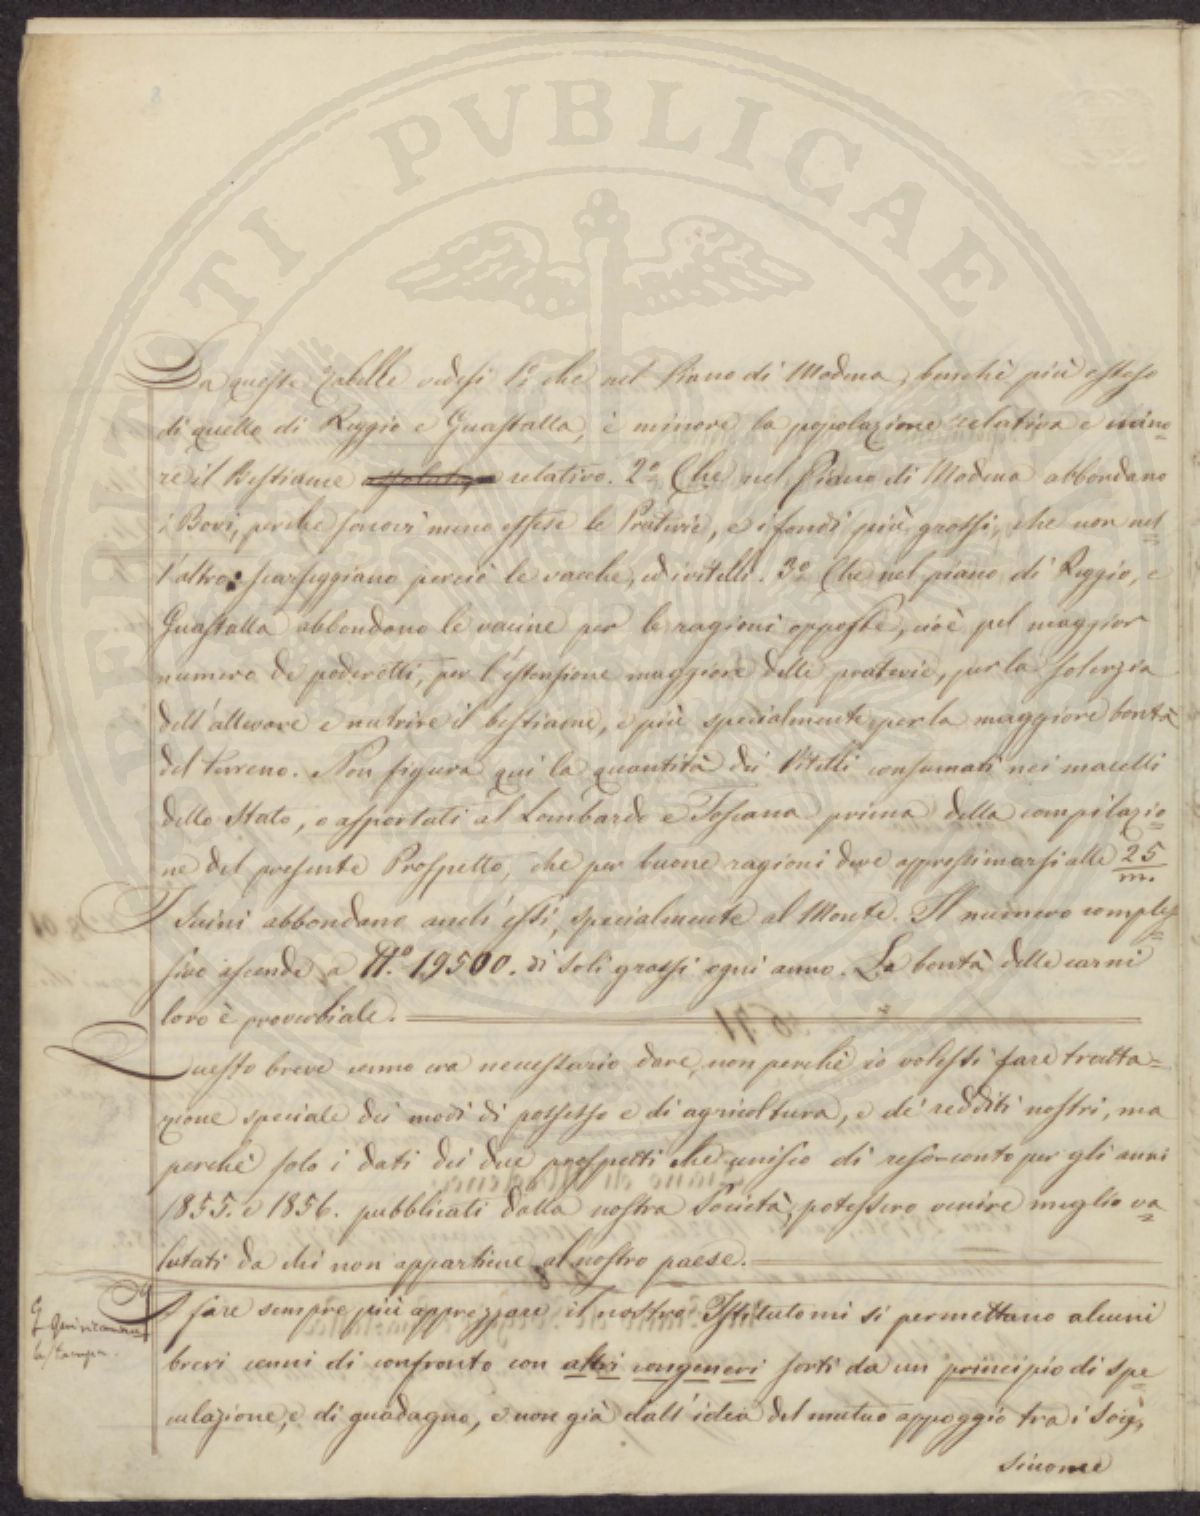 PVBLICAE
Da queste Tabelle vedesi 1º che nel Piano di Modena, benchè più esteso
di quello di Reggio e Guastalla, è minore la popolazione relativa e mino=
re il Bestiame relativo. 2º Che nel Piano di Modena abbondano
i Bovi, perchè sonovi meno estese le Praterie, e i fondi più grossi, che non nel=
l'altro: scarseggiano perciò le vacche, ed i vitelli. 3º Che nel piano di Reggio, e
Guastalla abbondano le vacine per le ragioni opposte, cioè pel maggior
numero de poderetti, per l'estensione maggiore delle praterie, per la solerzia
dell'allevare e nutrire il bestiame, e più specialmente per la maggiore bontà
del terreno. Non figura qui la quantità dei Vitelli consumati nei macelli
dello Stato, o asportati al Lombardo e Toscana prima della compilazio=
ne del presente Prospetto, che per buone ragioni deve approssimarsi alle 25/m.
I Suini abbondano anch'essi, specialmente al Monte. Il numero comples=
sivo ascende a Nº 19500. di soli grassi ogni anno. La bontà delle carni
loro è proverbiale.
Questo breve cenno era necessario dare, non perchè io volessi fare tratta=
zione speciale dei modi di possesso e di agricoltura, e de' redditi nostri, ma
perchè solo i dati dei due prospetti che unisco di reso-conto per gli anni
1855. e 1856. pubblicati dalla nostra Società, potessero venire meglio va=
lutati da chi non appartiene al nostro paese.
A fare sempre più apprezzare il nostro Istituto mi si permettano alcuni
Qui ricomincia
la stampa.
brevi cenni di confronto con altri congeneri sorti da un principio di spe=
culazione, e di guadagno, e non già dall'idea del mutuo appoggio tra i Soci,
siccome